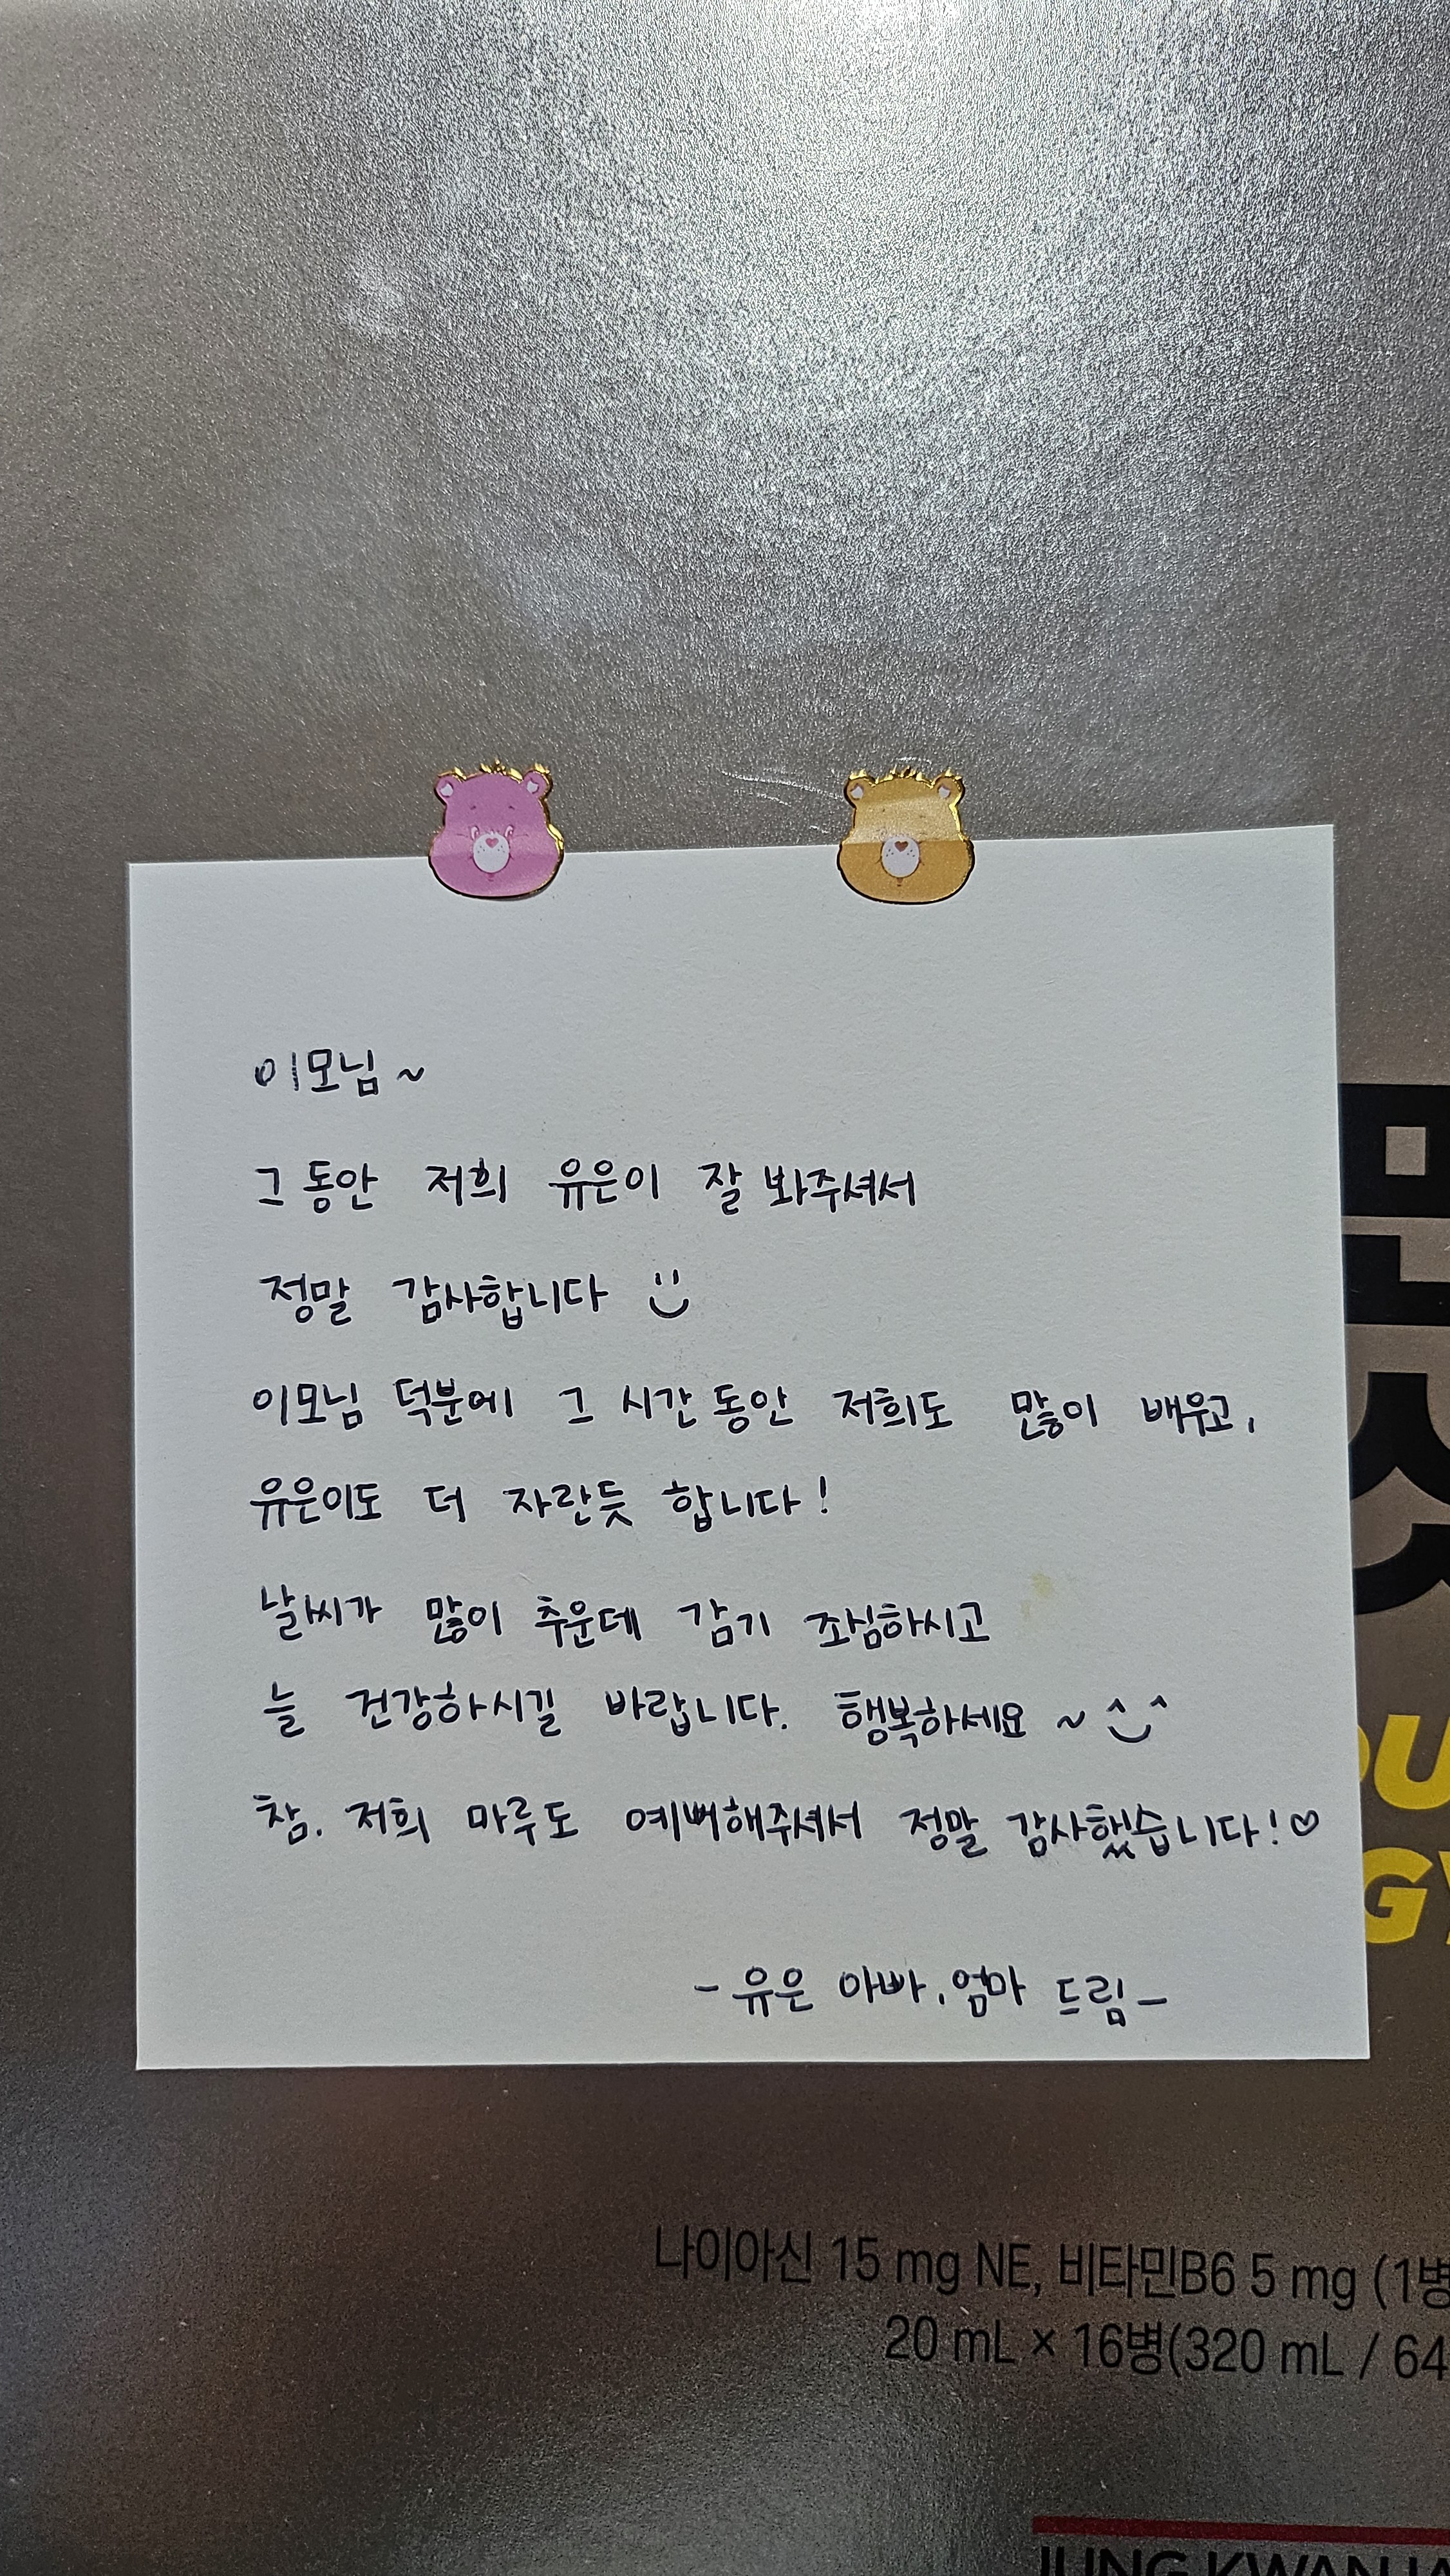 이모님~
그동안 저희 유은이 잘 봐주셔서
정말 감사합니다
이모님 덕분에 그 시간 동안 저희도 많이 배우고,
유은이도 더 자란듯 합니다!
날씨가 많이 추운데 감기 조심하시고
늘 건강하시길 바랍니다. 행복하세요~^^
참. 저희 마루도 예뻐해주셔서 정말 감사했습니다!♡
- 유은 아빠, 엄마 드림 -
나이아신 15 mg NE, 비타민B6 5 mg (1병
20 mL × 16병(320 mL / 64